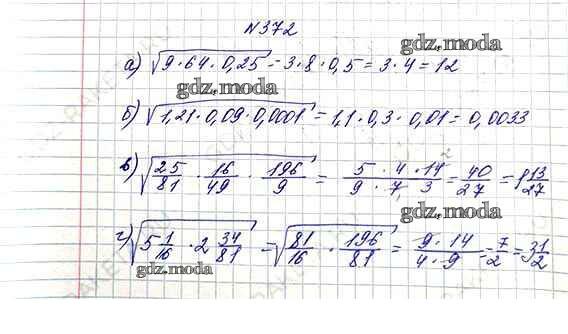 №372
gdz.moda
а) √9·64·0,25 = 3·8·0,5 = 3·4 = 12
gdz.moda
б) √1,21·0,09·0,0001 = 1,1·0,3·0,01 = 0,0033
в) √25/81 · 16/49 · 196/9 = 5·4·14/9·7·3 = 40/27 = 1 13/27
gdz.moda
г) √5 1/16 · 2 34/81 = √81/16 · 196/81 = 9·14/4·9 = 7/2 = 3 1/2
gdz.moda